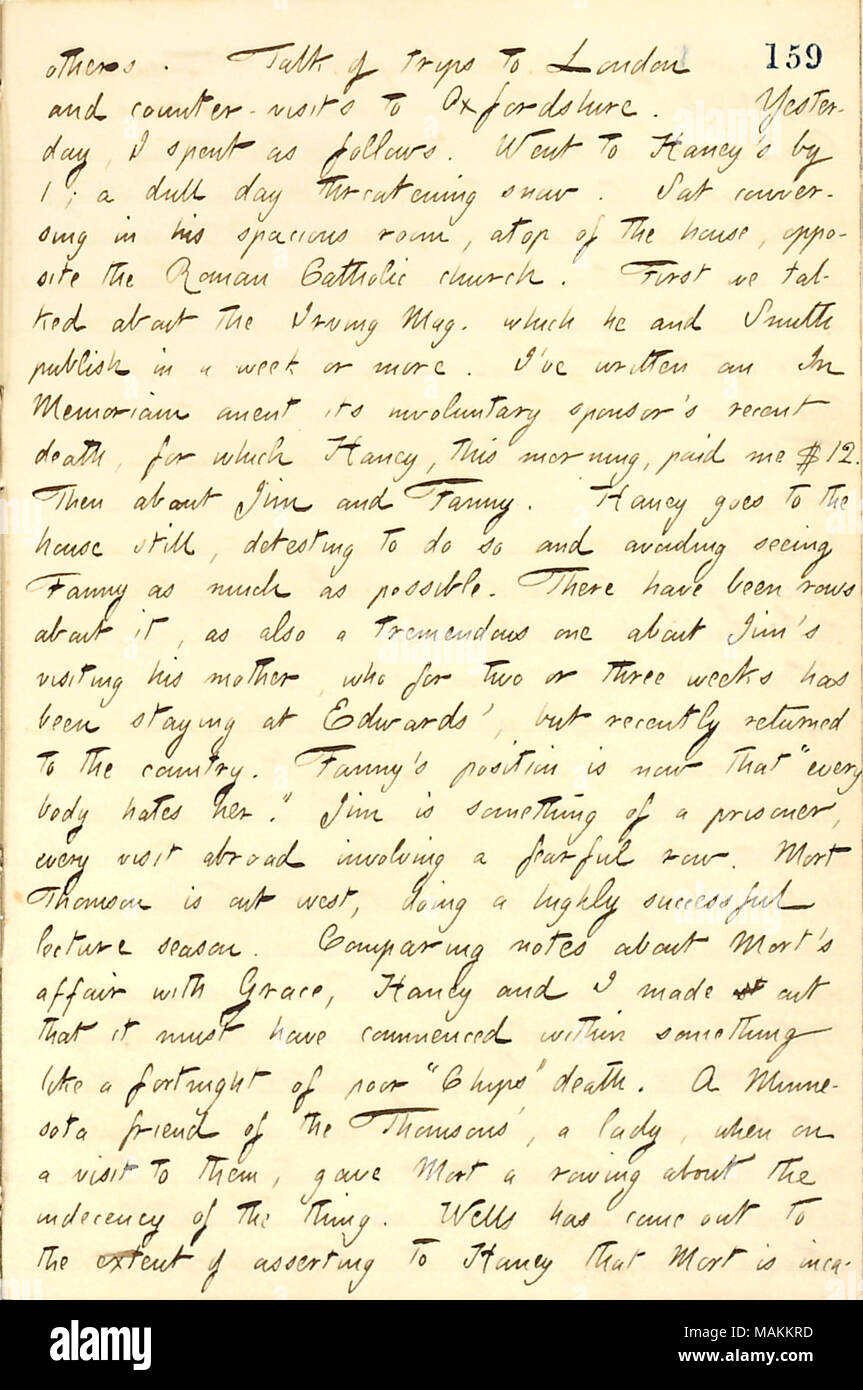 others. Talk of trips to London 159
and counter-visits to Oxfordshire. Yester-
day, I spent as follows. Went to Haney's by
1; a dull day threatening snow. Sat conver-
sing in his spacious room, atop of the house, oppo-
site the Roman Catholic church. First we tal-
ked about the Irving Mag. which he and Smith
publish in a week or more. I've written an In
Memoriam anent its involuntary sponsor's recent
death, for which Haney, this morning, paid me $12.
Then about Jim and Fanny. Haney goes to the
house still, detesting to do so and avoiding seeing
Fanny as much as possible. There have been rows
about it, as also a tremendous one about Jim's
visiting his mother, who for two or three weeks has
been staying at Edwards', but recently returned
to the country. Fanny's position is now that "every
body hates her." Jim is something of a prisoner,
every visit abroad involving a fearful row. Mort
Thomson is out west, doing a highly successful
lecture season. Comparing notes about Mort's
affair with Grace, Haney and I made out
that it must have commenced within something
like a fortnight of poor "Chips" death. A Minne-
sota friend of the Thomsons', a lady, when on
a visit to them, gave Mort a rowing about the
indecency of the thing. Wells has come out to
the extent of asserting to Haney that Mort is inca-
alamy
Image ID: MAKKRD
www.alamy.com